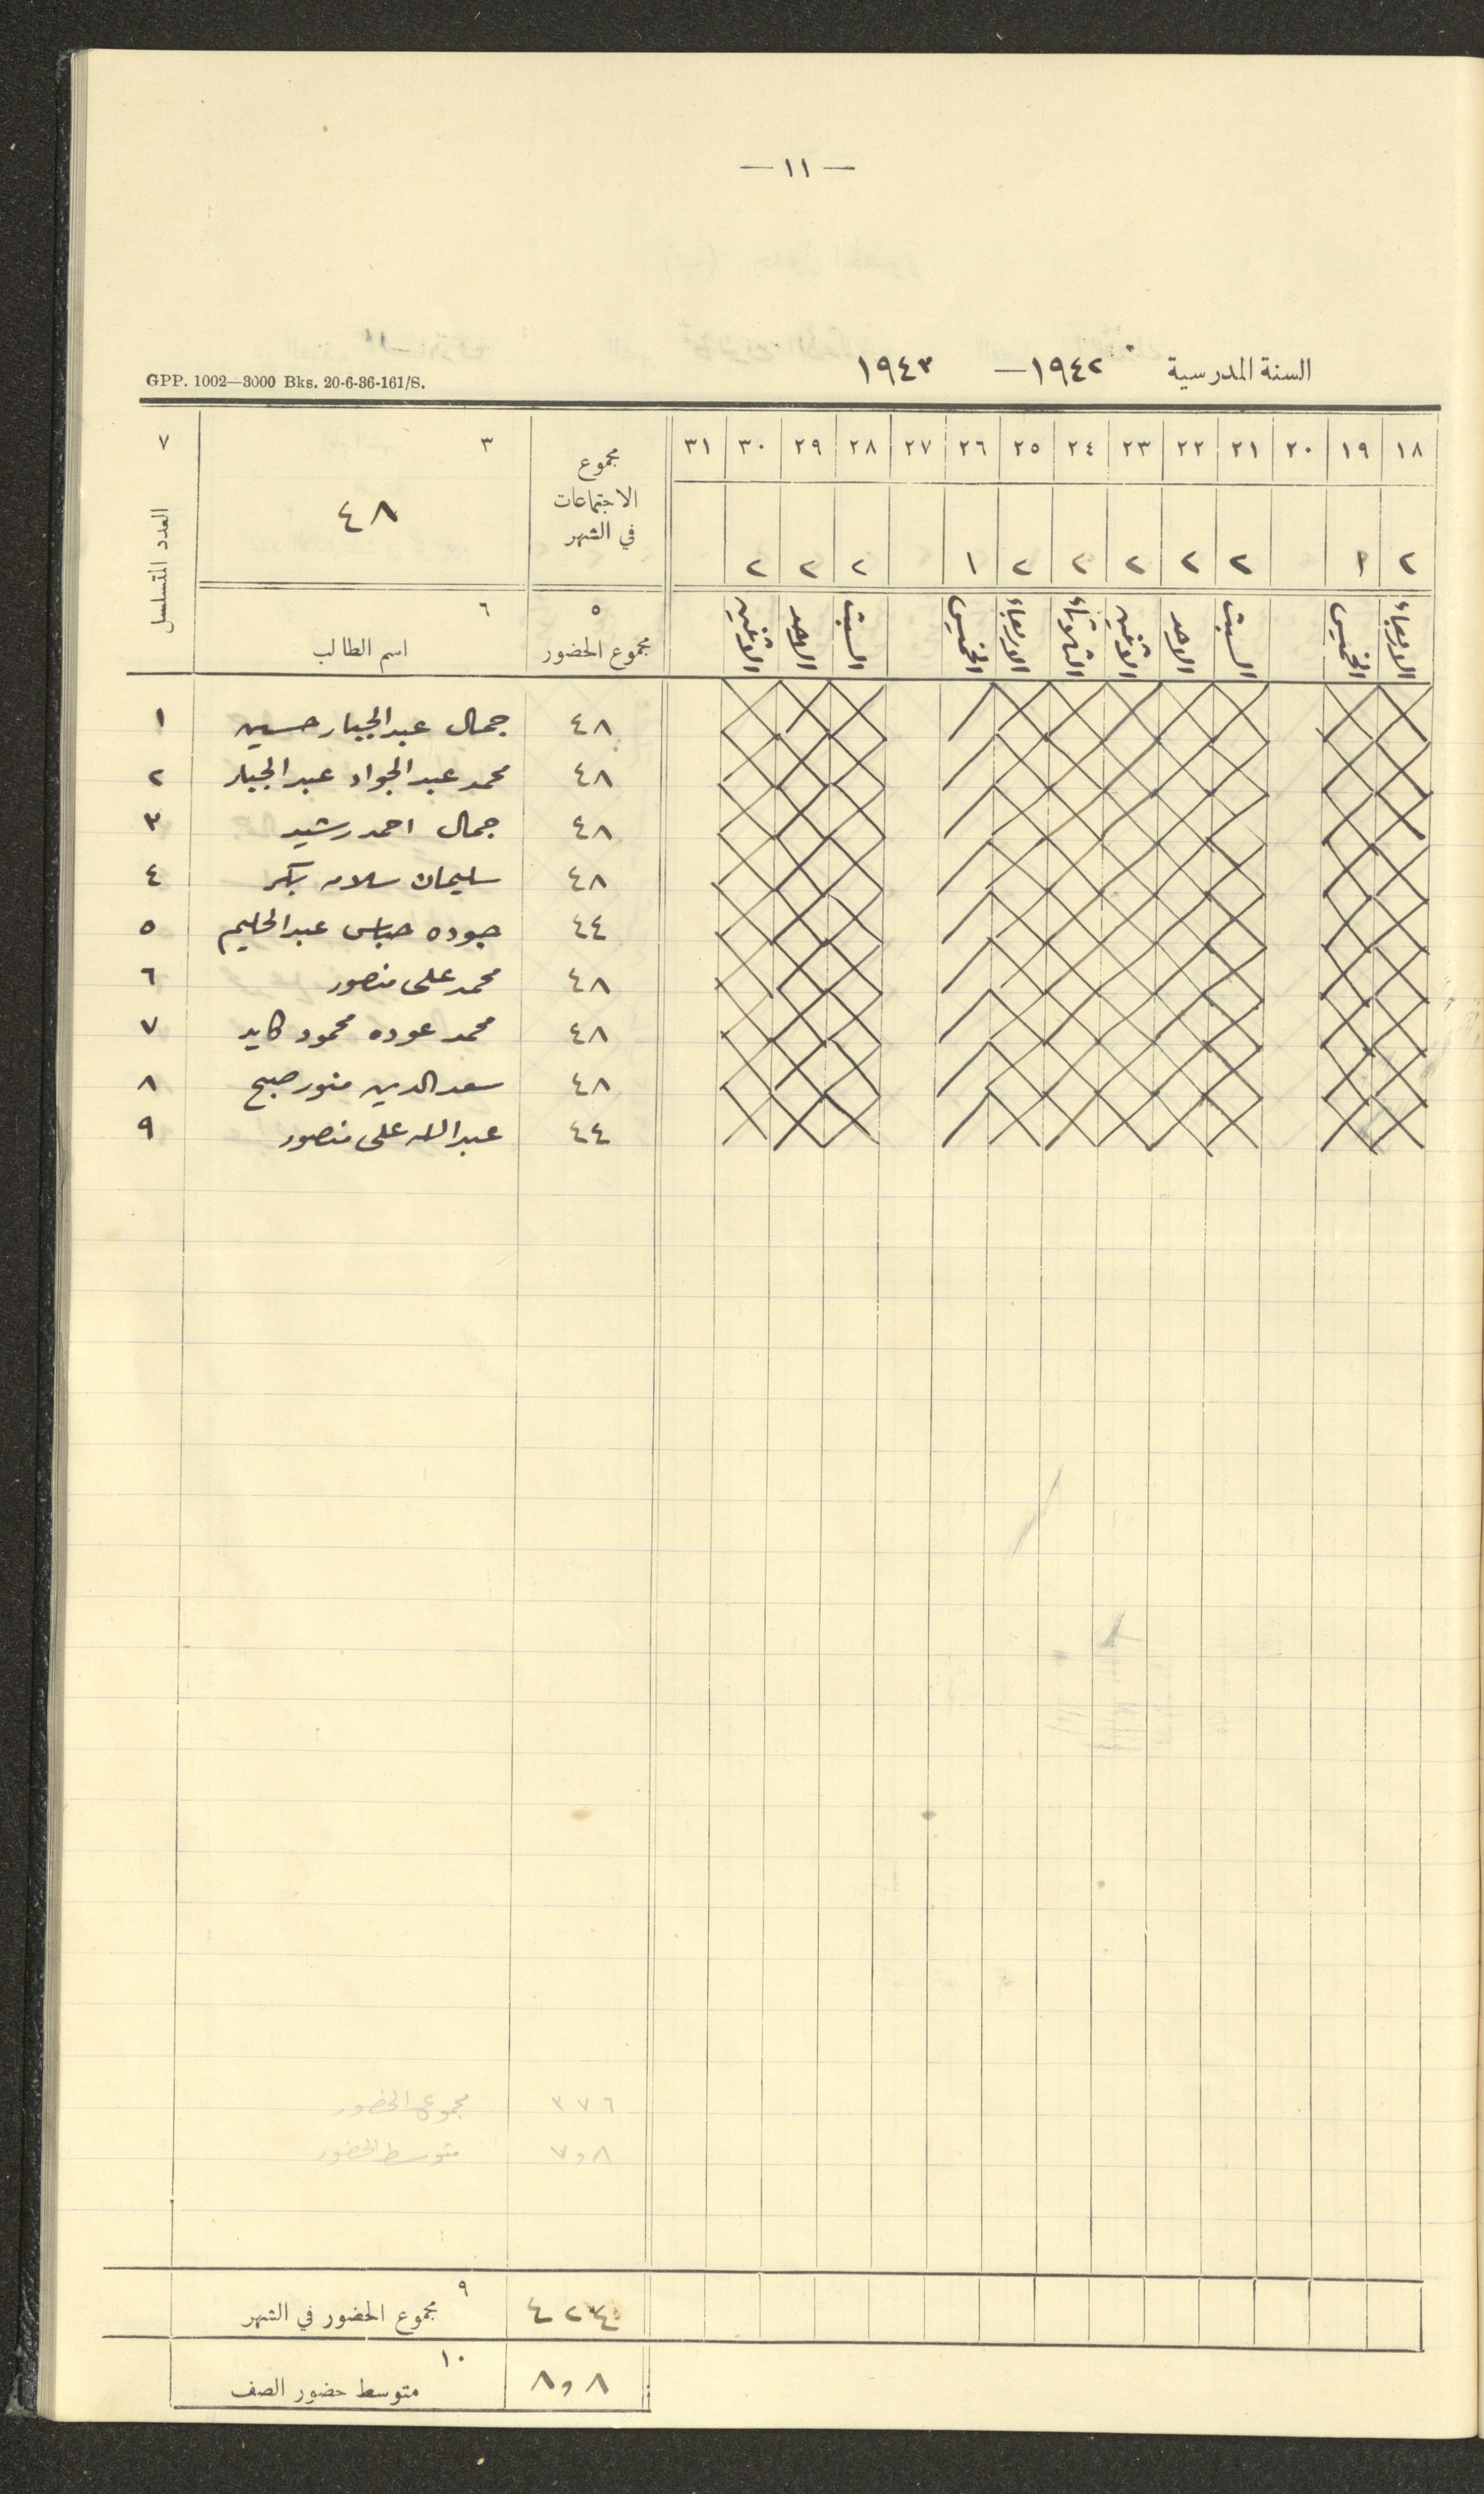 — ١١ —
السنة المدرسية ١٩٤٢ — ١٩٤٣
GPP. 1002—3000 Bks. 20-6-36-161/S.
١٨ ١٩ ٢٠ ٢١ ٢٢ ٢٣ ٢٤ ٢٥ ٢٦ ٢٧ ٢٨ ٢٩ ٣٠ ٣١ مجموع الاجتماعات في الشهر ٣ ٤٨ ٧ العدد المتسلسل
٢ ١ ٢ ٢ ٢ ٢ ٢ ١ ٢ ٢ ٢
الاربعاء الخميس السبت الاحد الاثنين الثلاثاء الاربعاء الخميس السبت الاحد الاثنين ٥ مجموع الحضور ٦ اسم الطالب
٤٨ جمال عبد الجبار حسين ١
٤٨ محمد عبد الجواد عبد الجبار ٢
٤٨ جمال احمد رشيد ٣
٤٨ سليمان سلامه بكر ٤
٤٤ جوده عباس عبد الحليم ٥
٤٨ محمد علي منصور ٦
٤٨ محمد عوده محمود كايد ٧
٤٨ سعد الدين منور صبح ٨
٤٤ عبد الله علي منصور ٩
٣٧٦ مجموع الحضور
٧٫٨ متوسط الحضور
٤٢٤ ٩ مجموع الحضور في الشهر
٨٫٨ ١٠ متوسط حضور الصف